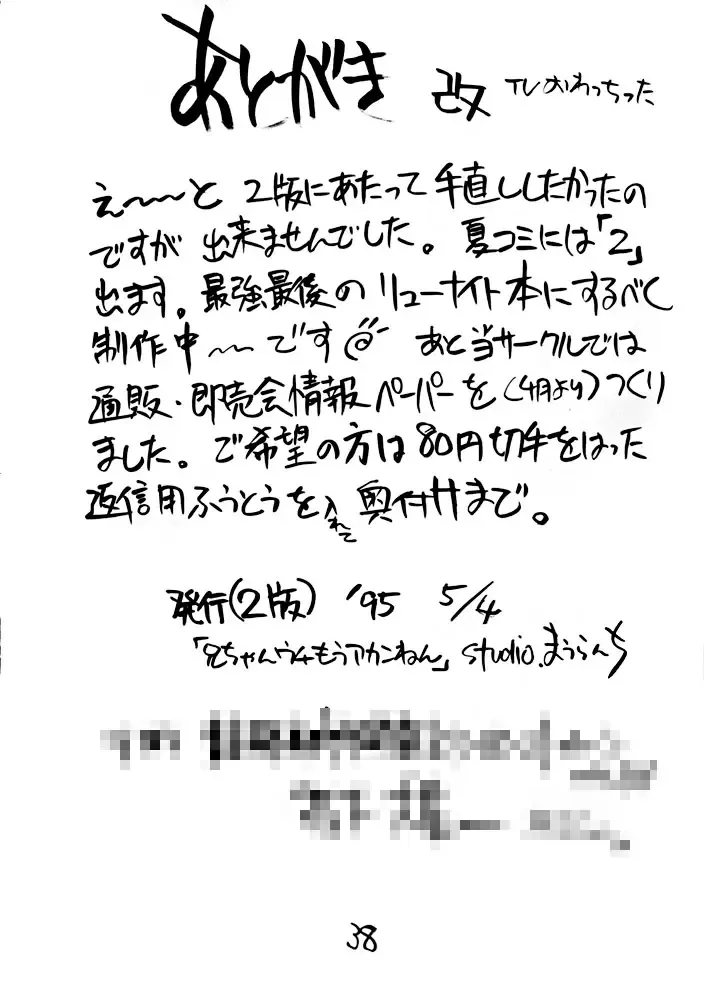 あとがき 改 TVおわっちった
え〜〜と 2版にあたって手直ししたかったの
ですが 出来ませんでした。夏コミには「2」
出ます。最強最後のリューナイト本にするべく
制作中〜〜です あと当サークルでは
通販・即売会情報ペーパーを(4月より)つくり
ました。ご希望の方は80円切手をはった
返信用ふうとうを入れて奥付けまで。
発行(2版) '95 5/4
「兄ちゃんウチもうアカンねん」studio.まうらんど
38